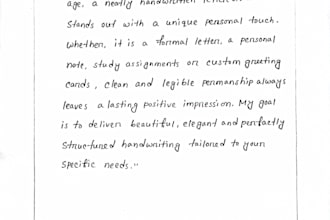 age, a neatly handwritten
Stands out with a unique personal touch.
Whether, it is a formal letter, a personal
note, study assignments or custom greeting
cards, clean and legible penmanship always
leaves a lasting positive impression. My goal
is to deliver beautiful, elegant and perfectly
Structured handwriting tailored to your
Specific needs."